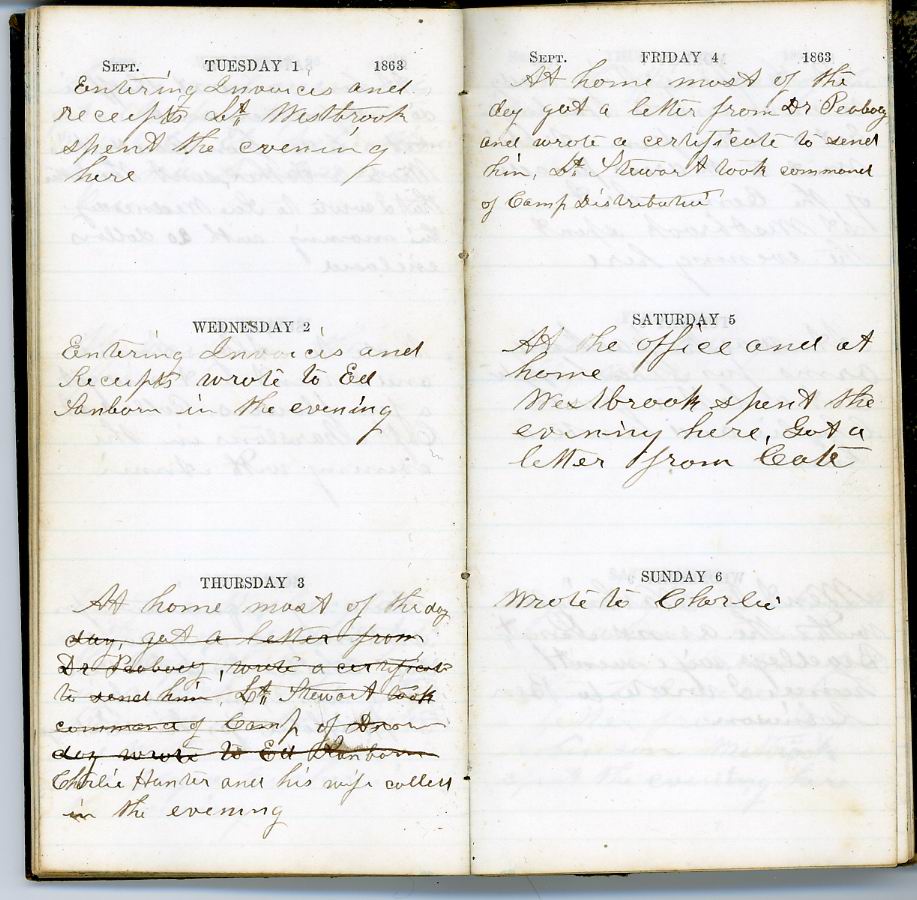 Sept. TUESDAY 1 1863
Entering Invoices and
receipts Lt. Westbrook
spent the evening
here
WEDNESDAY 2
Entering Invoices and
Receipts wrote to Ed
Sanborn in the evening
THURSDAY 3
At home most of the day
day, got a letter from
Dr Peabody, wrote a certificate
to send him, Lt. Stewart took
command of Camp of
day wrote to Ed Sanborn
Charlie Hunter and his wife called
in the evening
Sept. FRIDAY 4 1863
At home most of the
day got a letter from Dr Peabody
and wrote a certificate to send
him, Lt. Stewart took command
of Camp Distribution
SATURDAY 5
At the office and at
home
Westbrook spent the
evening here, Got a
letter from Cate
SUNDAY 6
Wrote to Charlie